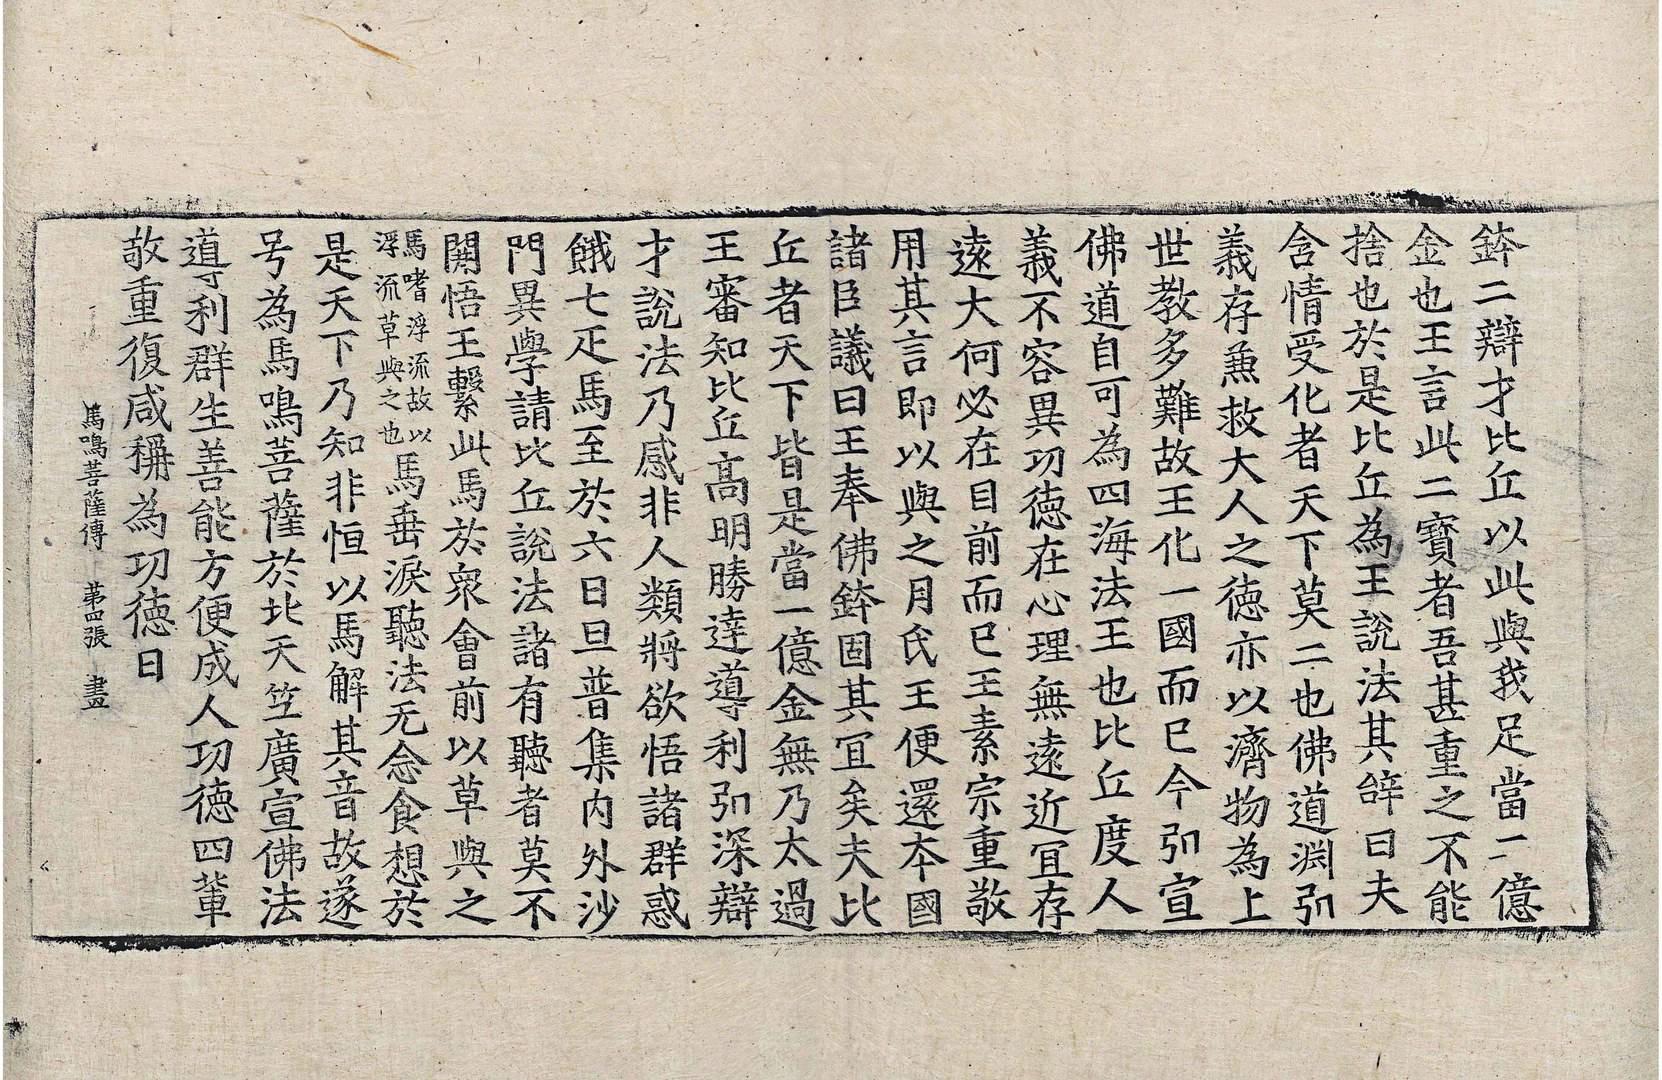 鉢二辯才比丘以此與我足當一億
金也王言此二寳者吾甚重之不能
捨也於是比丘為王說法其辞曰夫
含情受化者天下莫二也佛道渊弘
義存兼救大人之徳亦以濟物為上
世教多難故王化一國而已今弘宣
佛道自可為四海法王也比丘度人
義不容異功徳在心理無遠近宜存
遠大何必在目前而已王素宗重敬
用其言即以與之月氏王便還本國
諸臣議曰王奉佛鉢固其冝矣夫比
丘者天下皆是當一億金無乃太過
王審知比丘高明勝達導利弘深辯
才說法乃感非人類將欲悟諸群惑
餓七疋馬至於六日旦普集内外沙
門異學請比丘說法諸有聽者莫不
開悟王繫此馬於衆會前以草與之
馬嗜浮流故以
浮流草與之也
馬垂淚聽法无念食想於
是天下乃知非恒以馬解其音故遂
号為馬鳴菩薩於北天竺廣宣佛法
導利群生善能方便成人功徳四輩
敬重復咸稱為功徳日
馬鳴菩薩傳 苐四張 畫